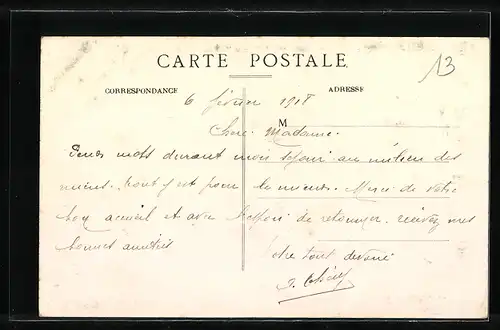 13
CARTE POSTALE
CORRESPONDANCE
ADRESSE
6 février 1918
M
Chère Madame.
mots durant mon séjour au milieu des
miens. tout y est pour le mieux. Merci de votre
bon accueil et avec l'espoir de retourner. recevez mes
bonnes amitiés
Votre tout dévoué